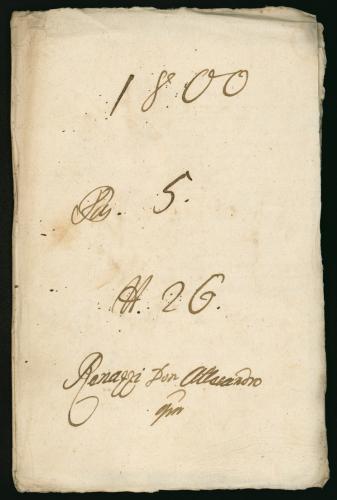 1800
Pos. 5.
N. 26.
Ranazzi Don Alessandro